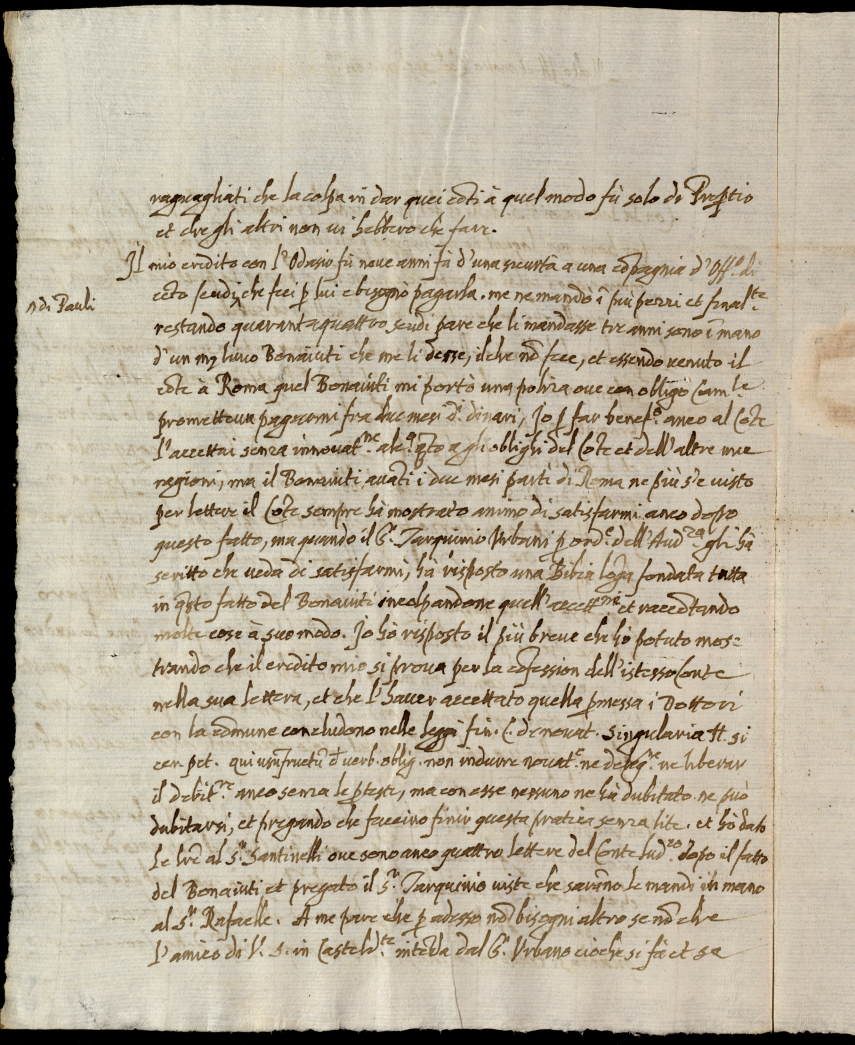 ragguagliati che la colpa in dar quei cōti à quel modo fù solo di
et che gli altri non vi hebbero che fare.
Il mio credito con l'Odasio fù nove anni fà d'una sicurtà a una cōpagnia d'Off.o di
n di Pauli
cēto scudi, che feci p lui e bisognò pagarla. me ne mandò ī più pezzi et final.te
restando quarantaquattro scudi pare che li mandasse tre anni sono ī mano
d'un Bonaiuti che me li desse, il che nō fece, et essendo venuto il
cōte à Roma quel Bonaiuti mi portò una poliza ove con obligo Cam.le
prometteva pagarmi fra due mesi d.i dinari, Io p far benef.o anco al Cōte
l'accettai senza innovat.ne alc.a q̄to a gli oblighi del Cōte et dell'altre mie
ragioni, ma il Bonaiuti avāti i due mesi partì di Roma ne più s'è visto
per lettere il Cōte sempre hà mostrato animo di satisfarmi anco dopo
questo fatto, ma quando il S.r Tarquinio Urbani p ord.e dell'Aud.re gli hà
scritto che veda di satisfarmi, hà risposto una Bibia lōga fondata tutta
in q̄sto fatto del Bonaiuti incolpandone quell'accett.ne et raccōtando
molte cose à suo modo. Io hò risposto il più breve che hò potuto mos=
trando che il credito mio si prova per la cōfession dell'istesso Conte
nella sua lettera, et che l'haver accettato quella pmessa i Dottori
con la cōmune concludono nelle leggi fin. C. de novat. singularia ff. si
cer. pet. qui usufructū d verb. oblig. non indurre novat.e ne deleg.ne ne liberar
il debit.re anco senza le pteste, ma con esse nessuno ne hà dubitato ne può
dubitarsi, et pregando che faccino finir questa pratica senza lite. et hò dato
le lr̄e al S.r Santinelli ove sono anco quattro lettere del Conte Lud.co dopo il fatto
del Bonaiuti et pregato il S.r Tarquinio viste che sarāno le mandi in mano
al S.r Rafaelle. A me pare che p adesso nō bisogni altro se nō che
l'amico di V. S. in Casteld.te intēda dal S.r Urbano ciò che si fà et sa